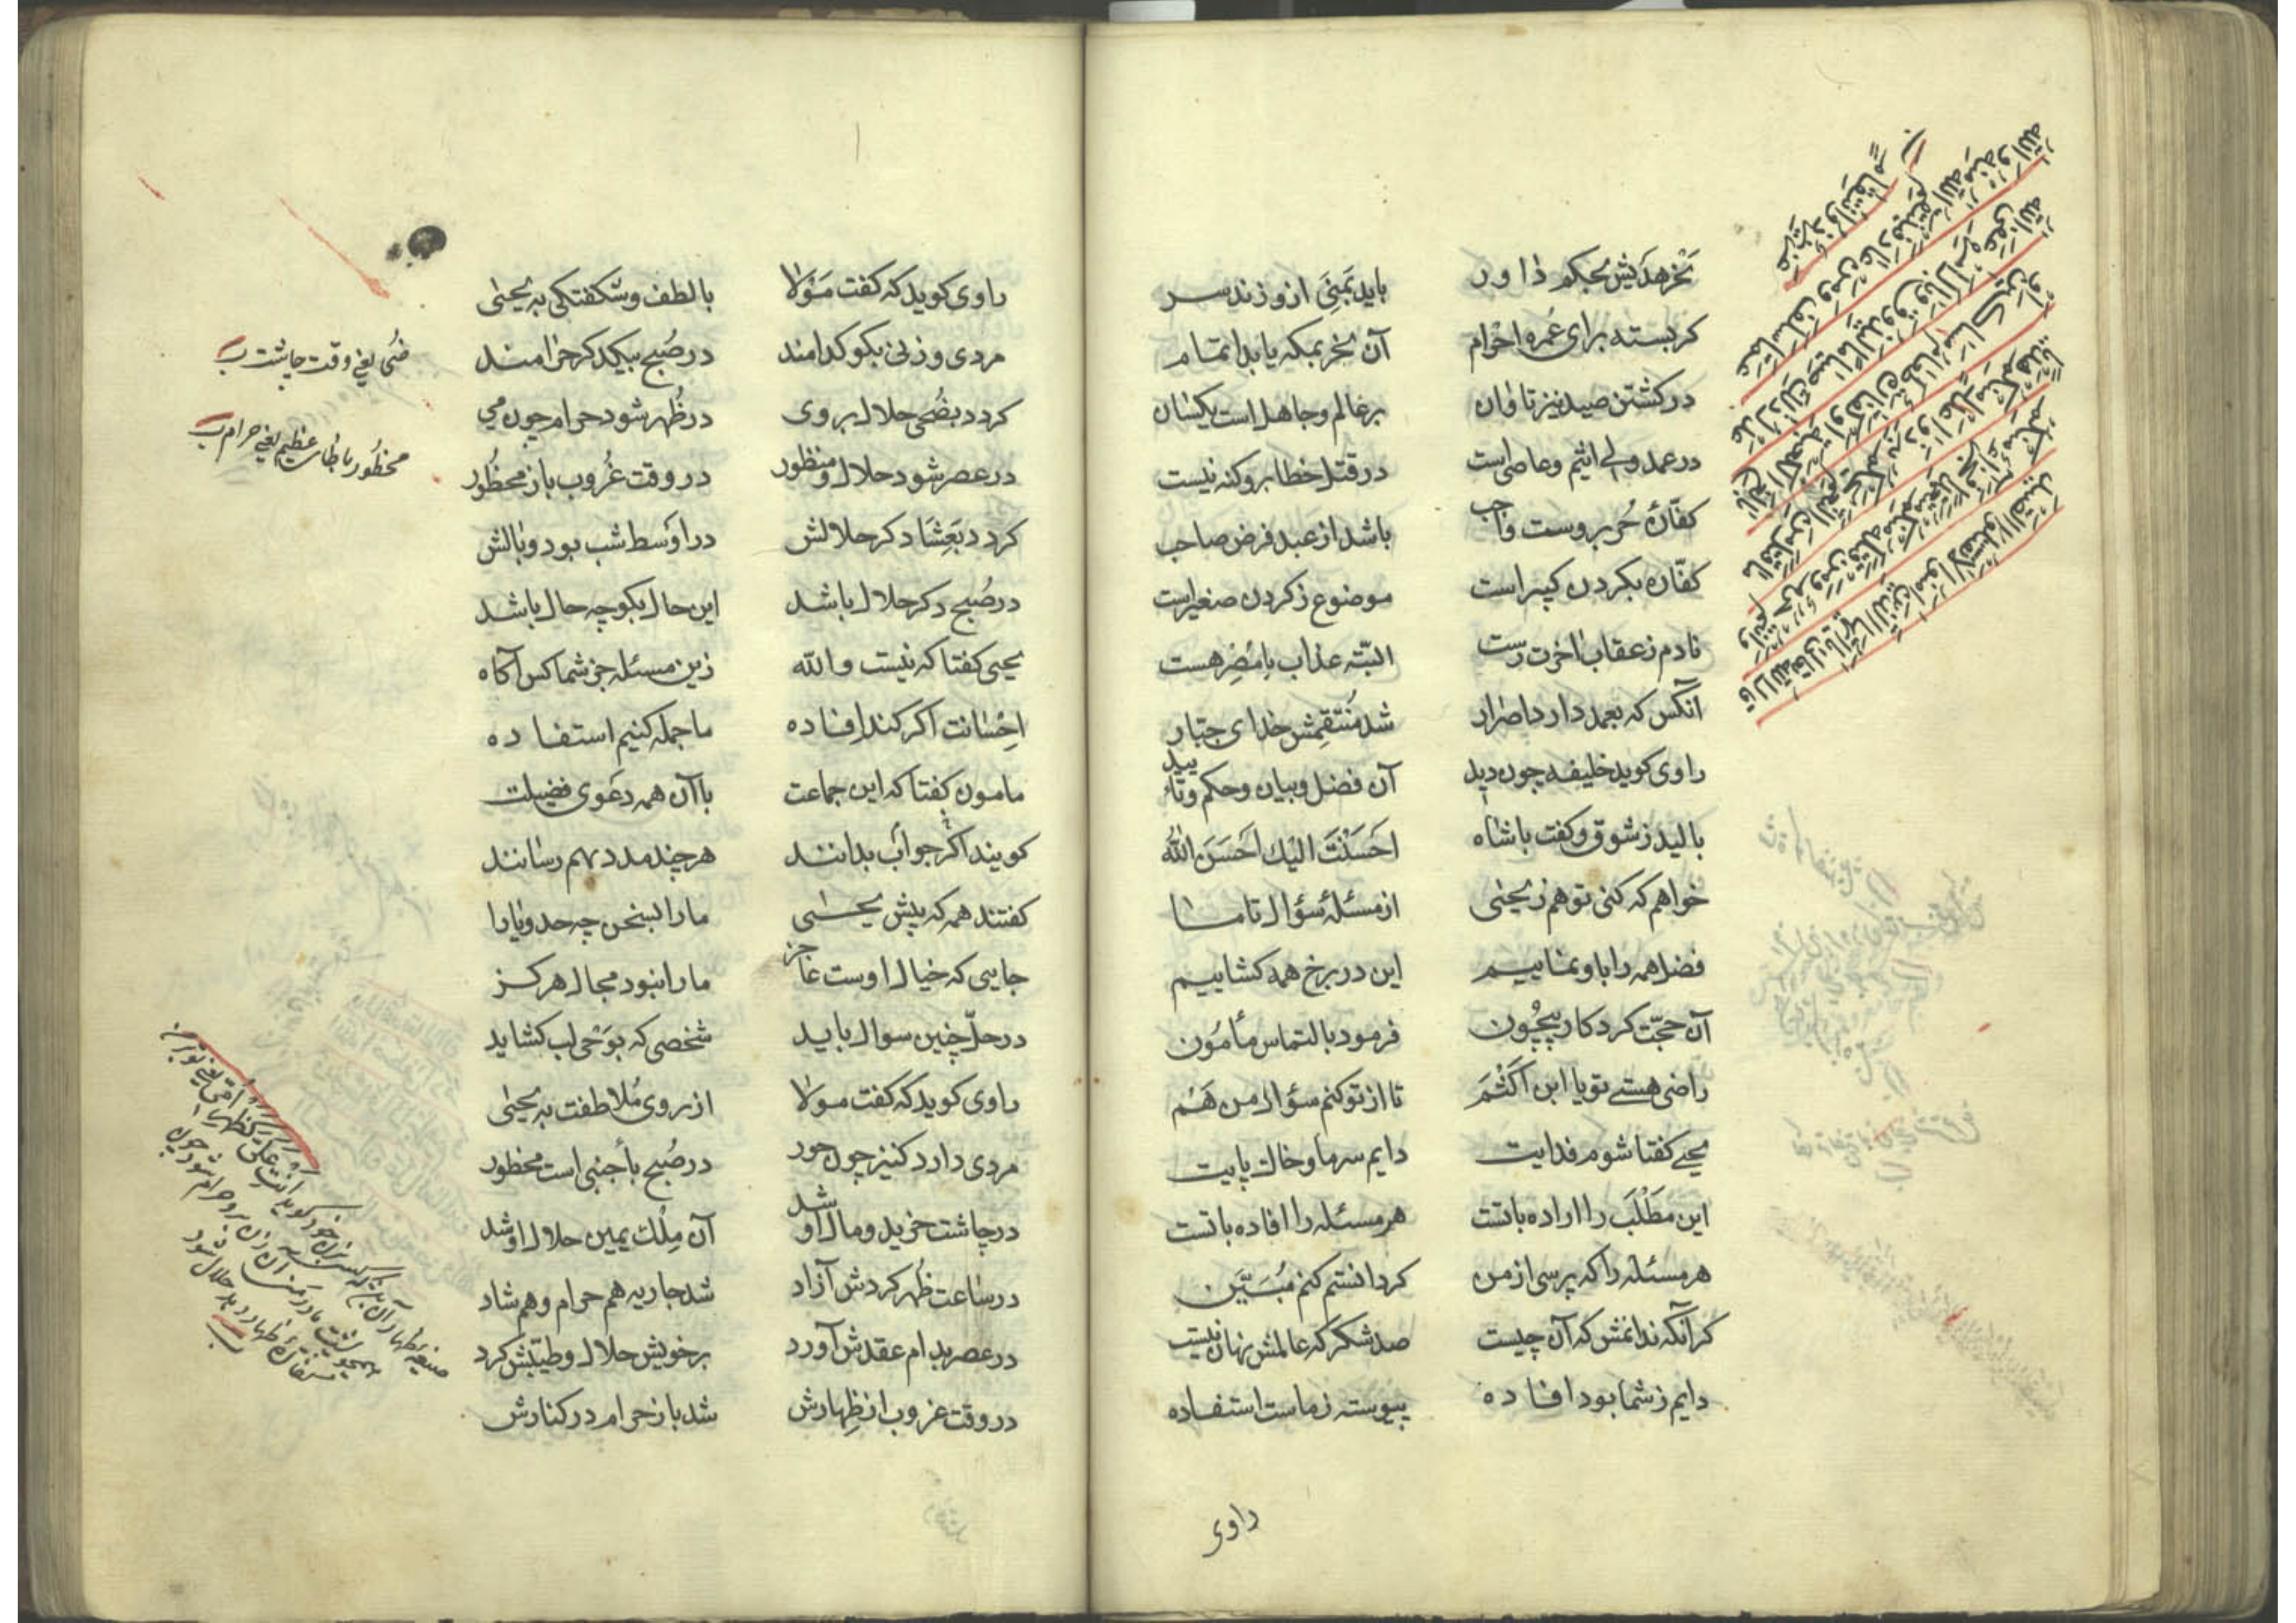 نحر هدیش بحکم داور باید بمنی ازو زند سر
کر بسته برای عمره احرام آن نحر بمکه یابد اتمام
در کشتن صید نیز تاوان بر عالم و جاهل است یکسان
در عمد ولی اثیم و عاصی است در قتل خطا برو کنه نیست
کفّارۀ حُر بروست واجب باشد از عبد فرض صاحب
کفّاره بکردن کبیر است موضوع ز کردن صغیر است
نادم ز عقاب آخرت رست البتّه عذاب با مُصِر هست
آنکس که بعمد دارد اصرار شد مُنتَقِمش خدای جبّار
راوی کوید خلیفه چون دید آن فضل و بیان و حکم و تأیید
بالید ز شوق و کفت با شاه اَحسَنْتَ الیك اَحسَنَ الله
خواهم که کنی تو هم ز یحیٰی از مسئلۀ سؤال تا ما
فضل همه را باو نماییم این در برخ همه کشاییم
آن حجّت کردکار بیچُون فرمود بالتماس مأمُون
راضی هستے تو یا ابن اکثَمَ تا از تو کنم سؤال من هَم
یحیے کفتا شوم فدایت دایم سر ما و خاك پایت
این مَطْلَب را اراده با تست هر مسئله را افاده با تست
هر مسئله را که پرسی از من کر دانستم کنم مُبَیَّن
کر آنکه ندانمش که آن چیست صد شکر که عالمش نهان نیست
دایم ز شما بود افاده پیوسته ز ماست استفاده
راوی
قال الله تعالی یا ایها الذین امنوا لا تقتلوا الصید
وانتم حرم ومن قتله منکم متعمدا فجزاء مثل
ما قتل من النعم یحکم به ذوا عدل منکم هدیا
بالغ الکعبة او کفارة طعام مساکین او
عدل ذلك صیاما لیذوق وبال امره عفی الله
عما سلف ومن عاد فینتقم الله منه والله
عزیز ذو انتقام
راوی کوید که کفت مَولا با لطف و شکفتکی به یحیٰی
مردی و زنی بکو کدامند در صُبح بیکدکر حرامند
کردد بضُحی حلال بر وی در ظُهر شود حرام چون می
در عصر شود حلال و منظور در وقت غُروب باز محظُور
کردد بعَشا دکر حلالش در اَوسط شب بود وبالش
در صُبح دکر حلال باشد این حال بکو چه حال باشد
یحیی کفتا که نیست والله زین مسئله جز شما کس آکاه
اِحْسانت اکر کند اِفاده ما جمله کنیم استفاده
مامون کفتا که این جماعت با آن همه دعَوی فضیلت
کویند اکر جواب بدانند هر چند مدد بهم رسانند
کفتند همه که پیش یحیٰی ما را بسخن چه حد و یارا
جایی که خیال اوست عاجز ما را نبود مجال هرکز
در حلّ چنین سوال باید شخصی که بوَحی لب کشاید
راوی کوید که کفت مولا از روی مُلاطفت به یحیٰی
مردی دارد کنیز چون حور در صُبح بأجنبی است محظور
در چاشت خرید و مال او شد آن مِلك یمین حلال او شد
در ساعت ظُهر کردش آزاد شد جاریه هم حرام و هم شاد
در عصر بدام عقدش آورد بر خویش حلال و طیّبش کرد
در وقت غروب از ظِهارش شد باز حرام در کنارش
ضُحی یعنی وقت چاشت
محظُور با ظاء عظیم یعنی حرام